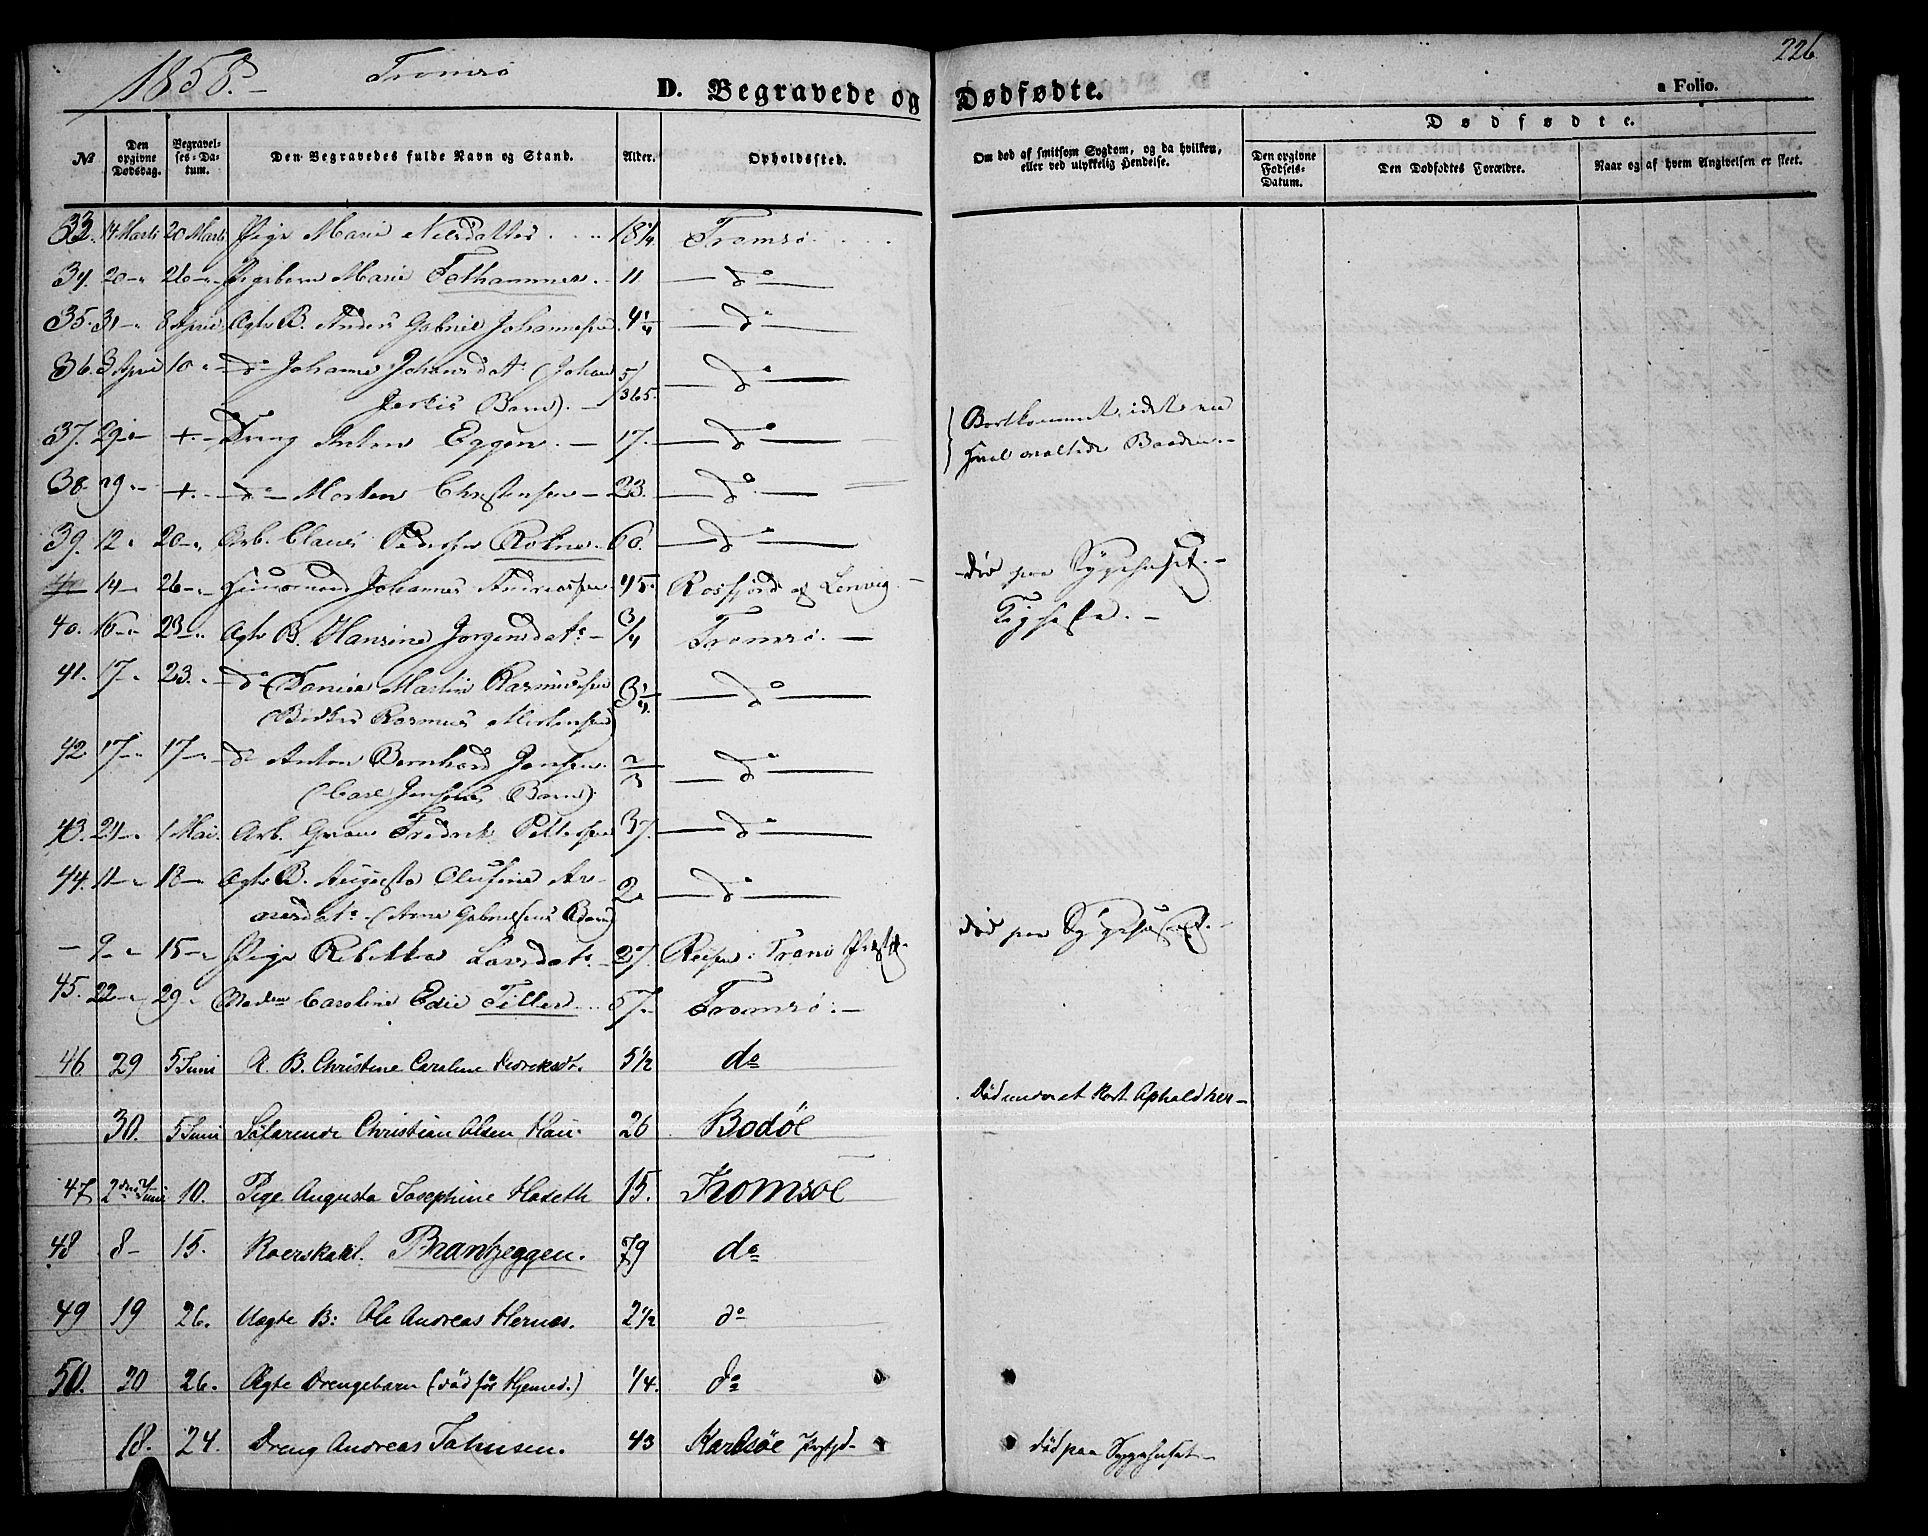 1858.
Tromsø
D. Begravede og Dødfødte.
226
a Folio.
№
Den opgivne Dødsdag.
Begravelses-Datum.
Den Begravedes fulde Navn og Stand.
Alder.
Opholdssted.
Om død af smitsom Sygdom, og da hvilken, eller ved ulykkelig Hendelse.
Dødfødte.
Den opgivne Fødsels-Datum.
Den Dødfødtes Forældre.
Naar og af hvem Angivelsen er skeet.
33. 14 Marts 20 Marts Pige Marie Nilsdatter 18¼ Tromsø.
34. 20 26 Pigebarn Marie 11 do
35. 31 8 April Ægte B. Anders Gabriel Johannesen 4¼ do
36. 3 April 10 do Johanna Johansdatr (Johan 5/365 do
Barn).
37. 29 + Dreng Anton Eggen 17. do Bortkommet
38. 29 + do Morten Christensen 23. do
39. 12 20 Arb. Claus Pedersen 60. do
14 26 Johannes Andreassen 45 Rosfjord af Lenvig død paa Sygehuset.
40. 16 23 Ægte B. Hansine Jørgensdatr ¾ Tromsø.
41. 17 23. do Daniel Martin Rasmussen 3¼ do
(Rasmus Mortensen)
42. 17 17 do Anton Bernhard Jensen 2/3 do
(Carl Jensens Barn).
43. 24 1 Mai. Arb. Fredrik Pettersen 37. do
44. 11 18 Ægte B. Augusta Olufine Ar- 2 do
nesdatr (Arne Gabrielsens Barn)
9 15 Pige Rebekka Larsdatr 27. Tranø død paa Sygehuset.
45. 22 29 Madm Caroline Tiller 57. Tromsø.
46 29 5 Juni Æ. B. Christine Caroline Didriksdt. 5½ do
30. 5 Juni Søfarende Christian Olsen 26 Bodøe Død under et kort Ophold her
47 2den Juni 10. Pige Augusta Josephine Hateth 15. Tromsøe
48 8 15. Brantzeggen. 79 do
49 19 26. Uægte B: Ole Andreas Hernes. 2½ do
50. 20 26. Ægte Drengebarn (død før Hjemed.) ¼. do
18. 24. Dreng Andreas Johnsen. 43 Karlsøe død paa Sygehuset